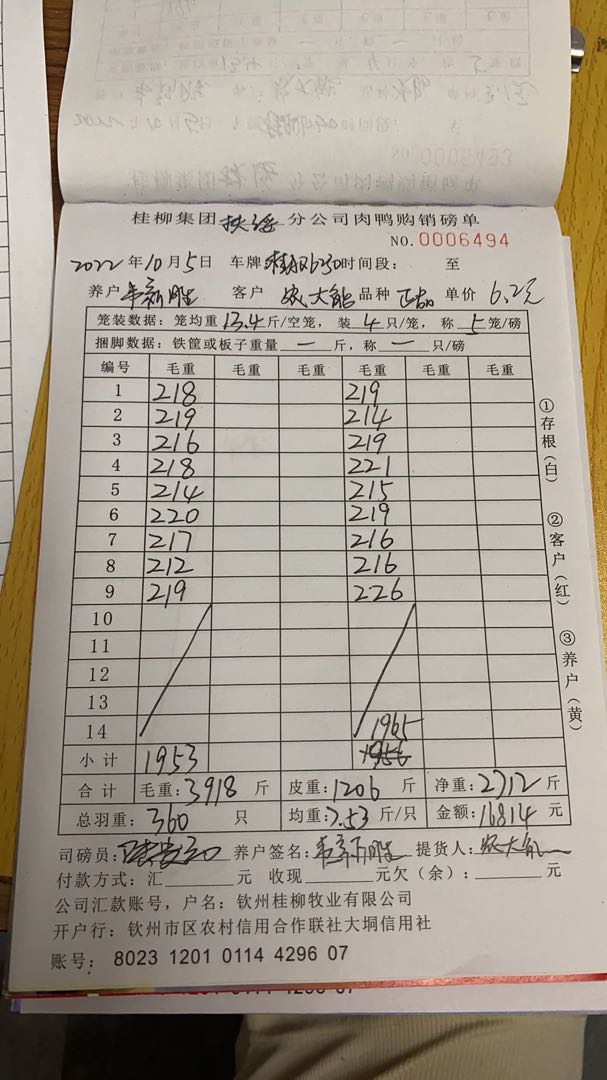 桂柳集团扶绥分公司肉鸭购销磅单
NO.0006494
2022年10月5日 车牌 6230 时间段： 至
养户 韦新胜 客户 农大能 品种 正品 单价 6.2元
笼装数据：笼均重13.4斤/空笼，装4只/笼，称5笼/磅
捆脚数据：铁筐或板子重量—斤，称—只/磅
编号 毛重 毛重 毛重 毛重 毛重
1 218 219
2 219 214
3 216 219
4 218 221
5 214 215
6 220 219
7 217 216
8 212 216
9 219 226
10
11
12
13
14 1965
小计 1953 1956
合计 毛重：3918斤 皮重：1206斤 净重：2712斤
总羽重：360只 均重：7.53斤/只 金额：16814元
司磅员： 养户签名：韦新胜 提货人：农大能
付款方式：汇 元 收现 元欠（余）： 元
公司汇款账号，户名：钦州桂柳牧业有限公司
开户行：钦州市区农村信用合作联社大垌信用社
账号：8023 1201 0114 4296 07
①存根（白）
②客户（红）
③养户（黄）